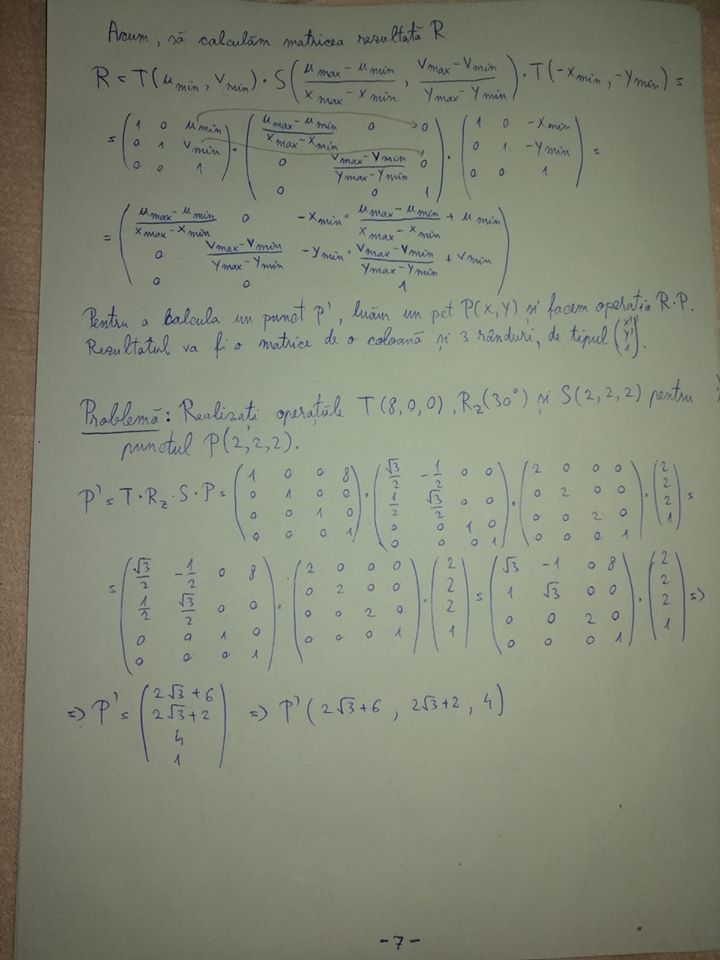 Acum, să calculăm matricea rezultată R
R = T(u_min, v_min) · S((u_max - u_min)/(x_max - x_min), (v_max - v_min)/(y_max - y_min)) · T(-x_min, -y_min) =
= (1 0 u_min; 0 1 v_min; 0 0 1) · ((u_max - u_min)/(x_max - x_min) 0 0; 0 (v_max - v_min)/(y_max - y_min) 0; 0 0 1) · (1 0 -x_min; 0 1 -y_min; 0 0 1) =
= ((u_max - u_min)/(x_max - x_min) 0 -x_min · (u_max - u_min)/(x_max - x_min) + u_min; 0 (v_max - v_min)/(y_max - y_min) -y_min · (v_max - v_min)/(y_max - y_min) + v_min; 0 0 1)
Pentru a calcula un punct P', luăm un pct P(x, y) și facem operația R·P.
Rezultatul va fi o matrice de o coloană și 3 rânduri, de tipul (x'; y'; 1).
Problemă: Realizați operațiile T(8,0,0), R_z(30°) și S(2,2,2) pentru
punctul P(2,2,2).
P' = T·R_z·S·P = (1 0 0 8; 0 1 0 0; 0 0 1 0; 0 0 0 1) · (√3/2 -1/2 0 0; 1/2 √3/2 0 0; 0 0 1 0; 0 0 0 1) · (2 0 0 0; 0 2 0 0; 0 0 2 0; 0 0 0 1) · (2; 2; 2; 1) =
= (√3/2 -1/2 0 8; 1/2 √3/2 0 0; 0 0 1 0; 0 0 0 1) · (2 0 0 0; 0 2 0 0; 0 0 2 0; 0 0 0 1) · (2; 2; 2; 1) = (√3 -1 0 8; 1 √3 0 0; 0 0 2 0; 0 0 0 1) · (2; 2; 2; 1) =>
=> P' = (2√3+6; 2√3+2; 4; 1) => P'(2√3+6, 2√3+2, 4)
-7-